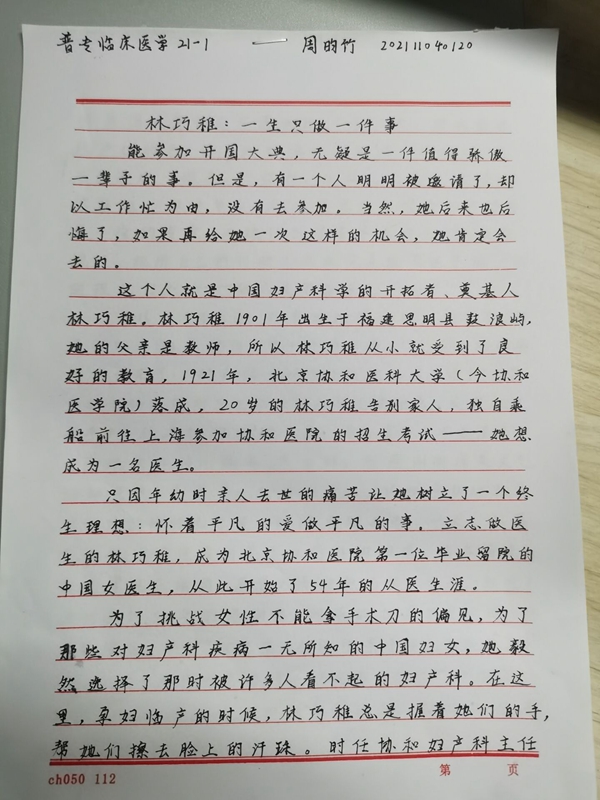 普专临床医学21-1 周昀竹 20211040120
林巧稚：一生只做一件事
能参加开国大典，无疑是一件值得骄傲
一辈子的事。但是，有一个人明明被邀请了，却
以工作忙为由，没有去参加。当然，她后来也后
悔了，如果再给她一次这样的机会，她肯定会
去的。
这个人就是中国妇产科学的开拓者、奠基人
林巧稚。林巧稚1901年出生于福建思明县鼓浪屿，
她的父亲是教师，所以林巧稚从小就受到了良
好的教育，1921年，北京协和医科大学（今协和
医学院）落成，20岁的林巧稚告别家人，独自乘
船前往上海参加协和医院的招生考试——她想
成为一名医生。
只因年幼时亲人去世的痛苦让她树立了一个终
生理想：怀着平凡的爱做平凡的事。立志做医
生的林巧稚，成为北京协和医院第一位毕业留院的
中国女医生，从此开始了54年的从医生涯。
为了挑战女性不能拿手术刀的偏见，为了
那些对妇产科疾病一无所知的中国妇女，她毅
然选择了那时被许多人看不起的妇产科。在这
里，孕妇临产的时候，林巧稚总是握着她们的手，
帮她们擦去脸上的汗珠。时任协和妇产科主任
ch050 112 第 页